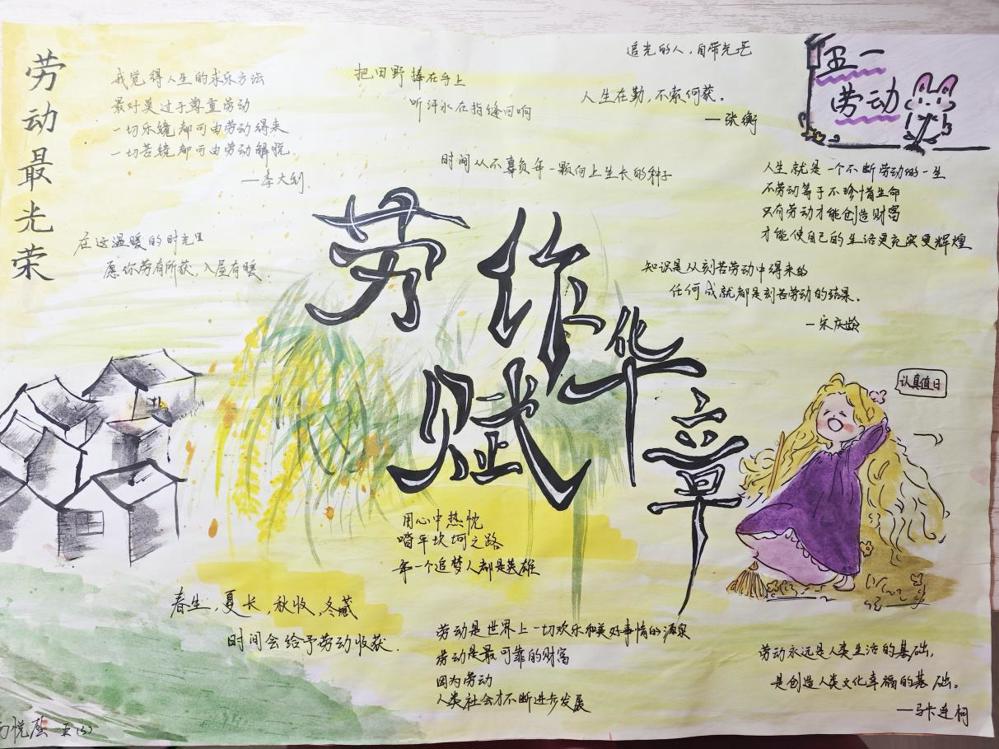 劳动最光荣
我觉得人生的求乐方法
最好莫过于尊重劳动
一切乐境都可由劳动得来
一切苦境都可由劳动解脱
—李大钊
在这温暖的时光里
愿你劳有所获，入屋有暖.
把田野捧在手上
听汗水在指缝回响
追光的人，自带光芒
人生在勤，不索何获。
—张衡
时间从不辜负每一颗向上生长的种子
五一
劳动
人生就是一个不断劳动的一生
不劳动等于不珍惜生命
只有劳动才能创造财富
才能使自己的生活更充实更辉煌
知识是从刻苦劳动中得来的
任何成就都是刻苦劳动的结果。
—宋庆龄
劳作
赋华章
认真值日
用心中热忱
踏平坎坷之路
每一个追梦人都是英雄
春生，夏长，秋收，冬藏
时间会给予劳动收获.
劳动是世界上一切欢乐和美好事情的源泉
劳动是最可靠的财富
因为劳动
人类社会才不断进步发展
劳动永远是人类生活的基础，
是创造人类文化幸福的基础。
—马卡连柯
五(5)